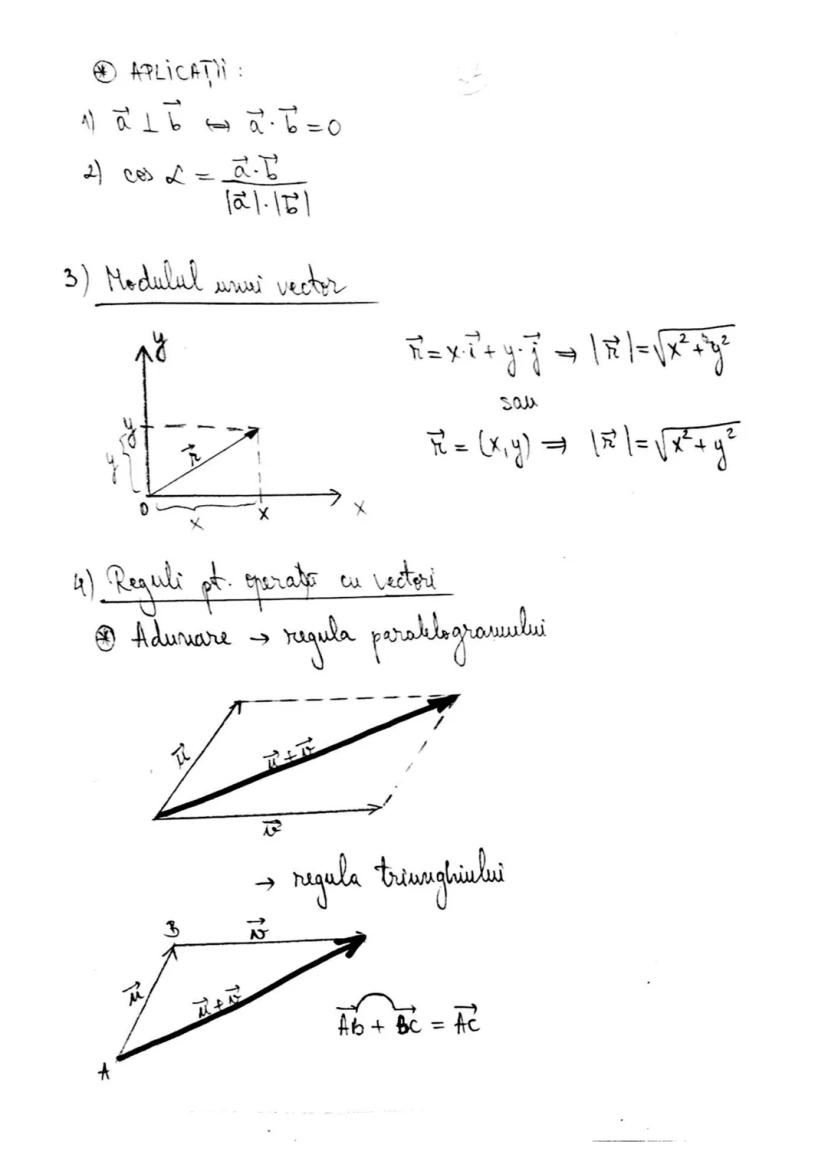 ⊛ APLICAȚII :
1) a⃗ ⊥ b⃗ ⇔ a⃗ · b⃗ = 0
2) cos α = a⃗·b⃗ / |a⃗|·|b⃗|
3) Modulul unui vector
y
y
y
r⃗
O
x
x
x
r⃗ = x·i⃗ + y·j⃗ ⇒ |r⃗| = √x² + y²
sau
r⃗ = (x,y) ⇒ |r⃗| = √x² + y²
4) Reguli pt. operații cu vectori
⊛ Adunare → regula paralelogramului
u⃗
u⃗ + v⃗
v⃗
→ regula triunghiului
B
v⃗
u⃗
u⃗ + v⃗
A
AB⃗ + BC⃗ = AC⃗